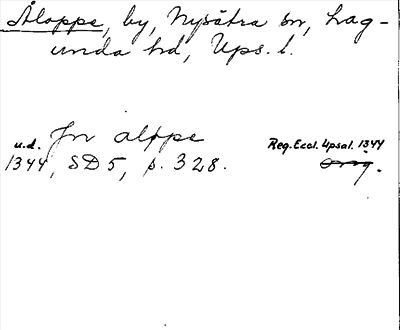 Åloppe, by, Nysätra sn, Lag-
unda hd, Ups. l.
u.d. Jn aloppe Reg. Eccl. Upsal. 1344
1344, SD 5, p. 328. Orig.